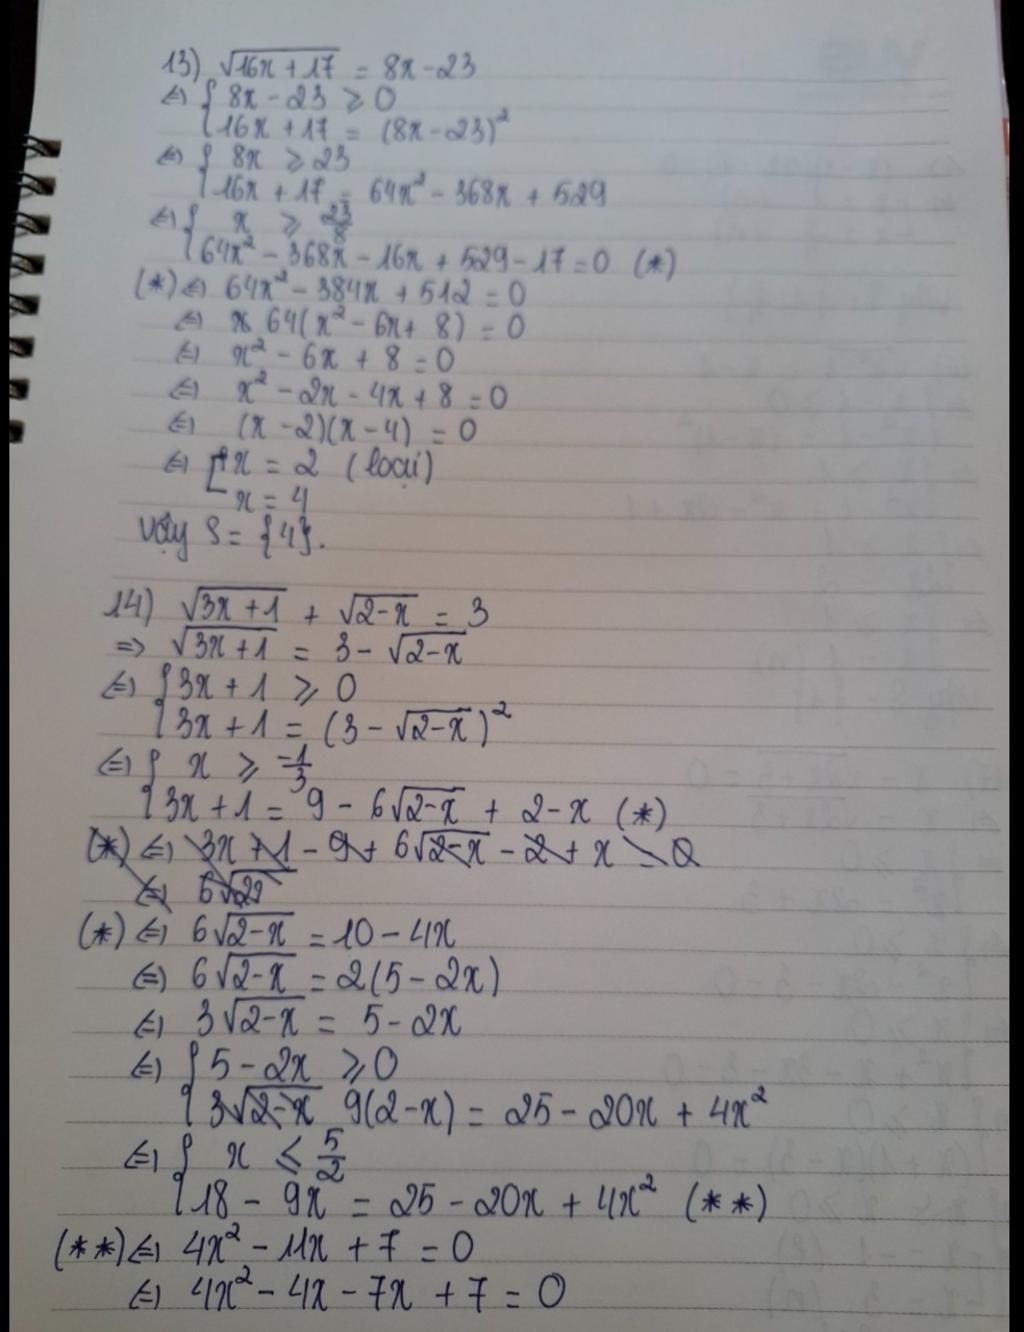 13) √(16x+17) = 8x-23
⇔ { 8x - 23 ⩾ 0
{ 16x + 17 = (8x-23)²
⇔ { 8x ⩾ 23
{ 16x + 17 = 64x² - 368x + 529
⇔ { x ⩾ 23/8
{ 64x² - 368x - 16x + 529 - 17 = 0 (*)
(*) ⇔ 64x² - 384x + 512 = 0
⇔ 64(x² - 6x + 8) = 0
⇔ x² - 6x + 8 = 0
⇔ x² - 2x - 4x + 8 = 0
⇔ (x - 2)(x - 4) = 0
⇔ [ x = 2 (loại)
x = 4
Vậy S = {4}.
14) √(3x+1) + √(2-x) = 3
=> √(3x+1) = 3 - √(2-x)
⇔ { 3x + 1 ⩾ 0
{ 3x + 1 = (3 - √(2-x))²
⇔ { x ⩾ -1/3
{ 3x + 1 = 9 - 6√(2-x) + 2 - x (*)
(*) ⇔ 3x + 1 - 9 + 6√(2-x) - 2 + x = 0
⇔ 6√2
(*) ⇔ 6√(2-x) = 10 - 4x
⇔ 6√(2-x) = 2(5 - 2x)
⇔ 3√(2-x) = 5 - 2x
⇔ { 5 - 2x ⩾ 0
{ 3√(2-x) 9(2-x) = 25 - 20x + 4x²
⇔ { x ⩽ 5/2
{ 18 - 9x = 25 - 20x + 4x² (**)
(**) ⇔ 4x² - 11x + 7 = 0
⇔ 4x² - 4x - 7x + 7 = 0